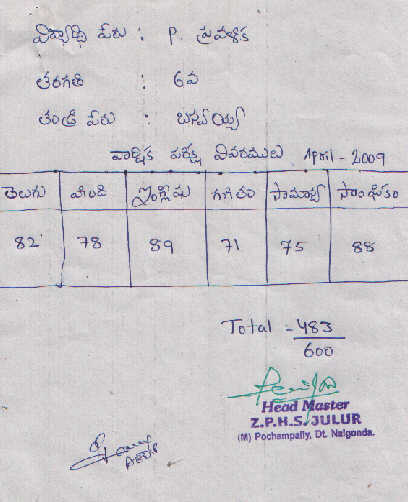 విద్యార్థి పేరు : P. ప్రవళిక
తరగతి : 6వ
తండ్రి పేరు : బస్వయ్య
వార్షిక పరీక్ష వివరములు April - 2009
తెలుగు హిందీ ఇంగ్లీషు గణితం సామాన్య సాంఘికం
82 78 89 71 75 88
Total - 483
600
Head Master
Z.P.H.S. JULUR
(M) Pochampally, Dt. Nalgonda.